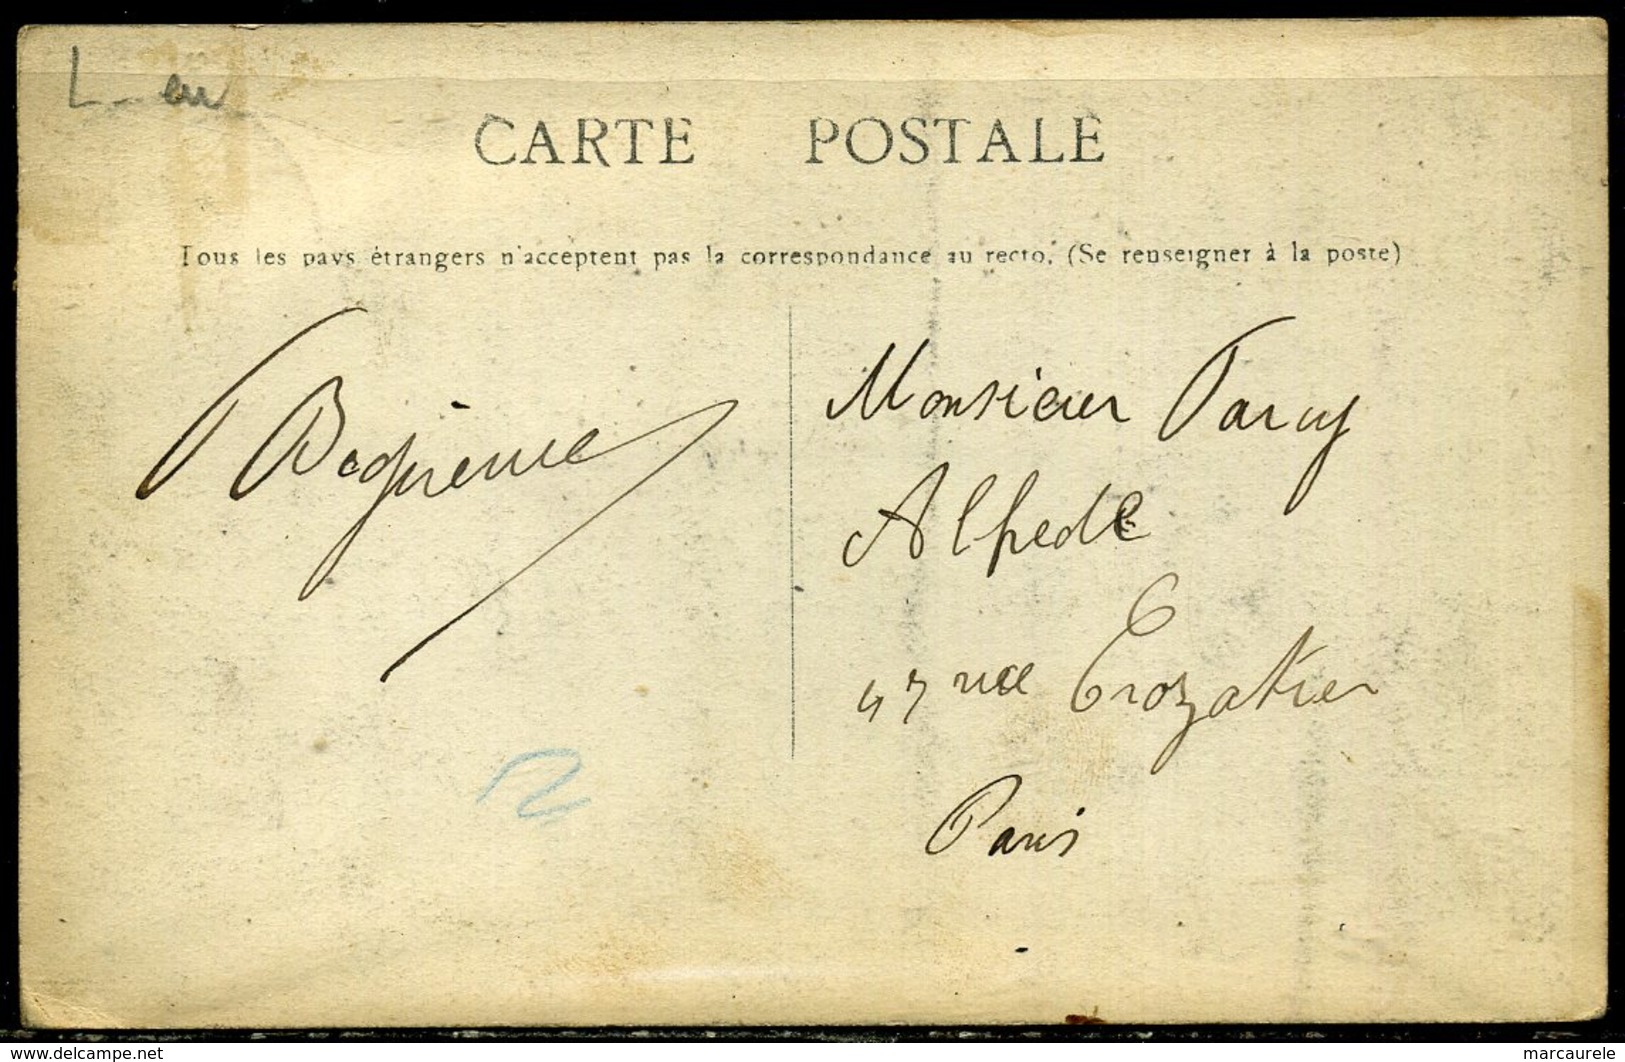 L_eu
CARTE POSTALE
Tous les pays étrangers n'acceptent pas la correspondance au recto. (Se renseigner à la poste)
Monsieur Parcy
Alfred
47 rue Crozatier
Paris
delcampe.net
marcaurele